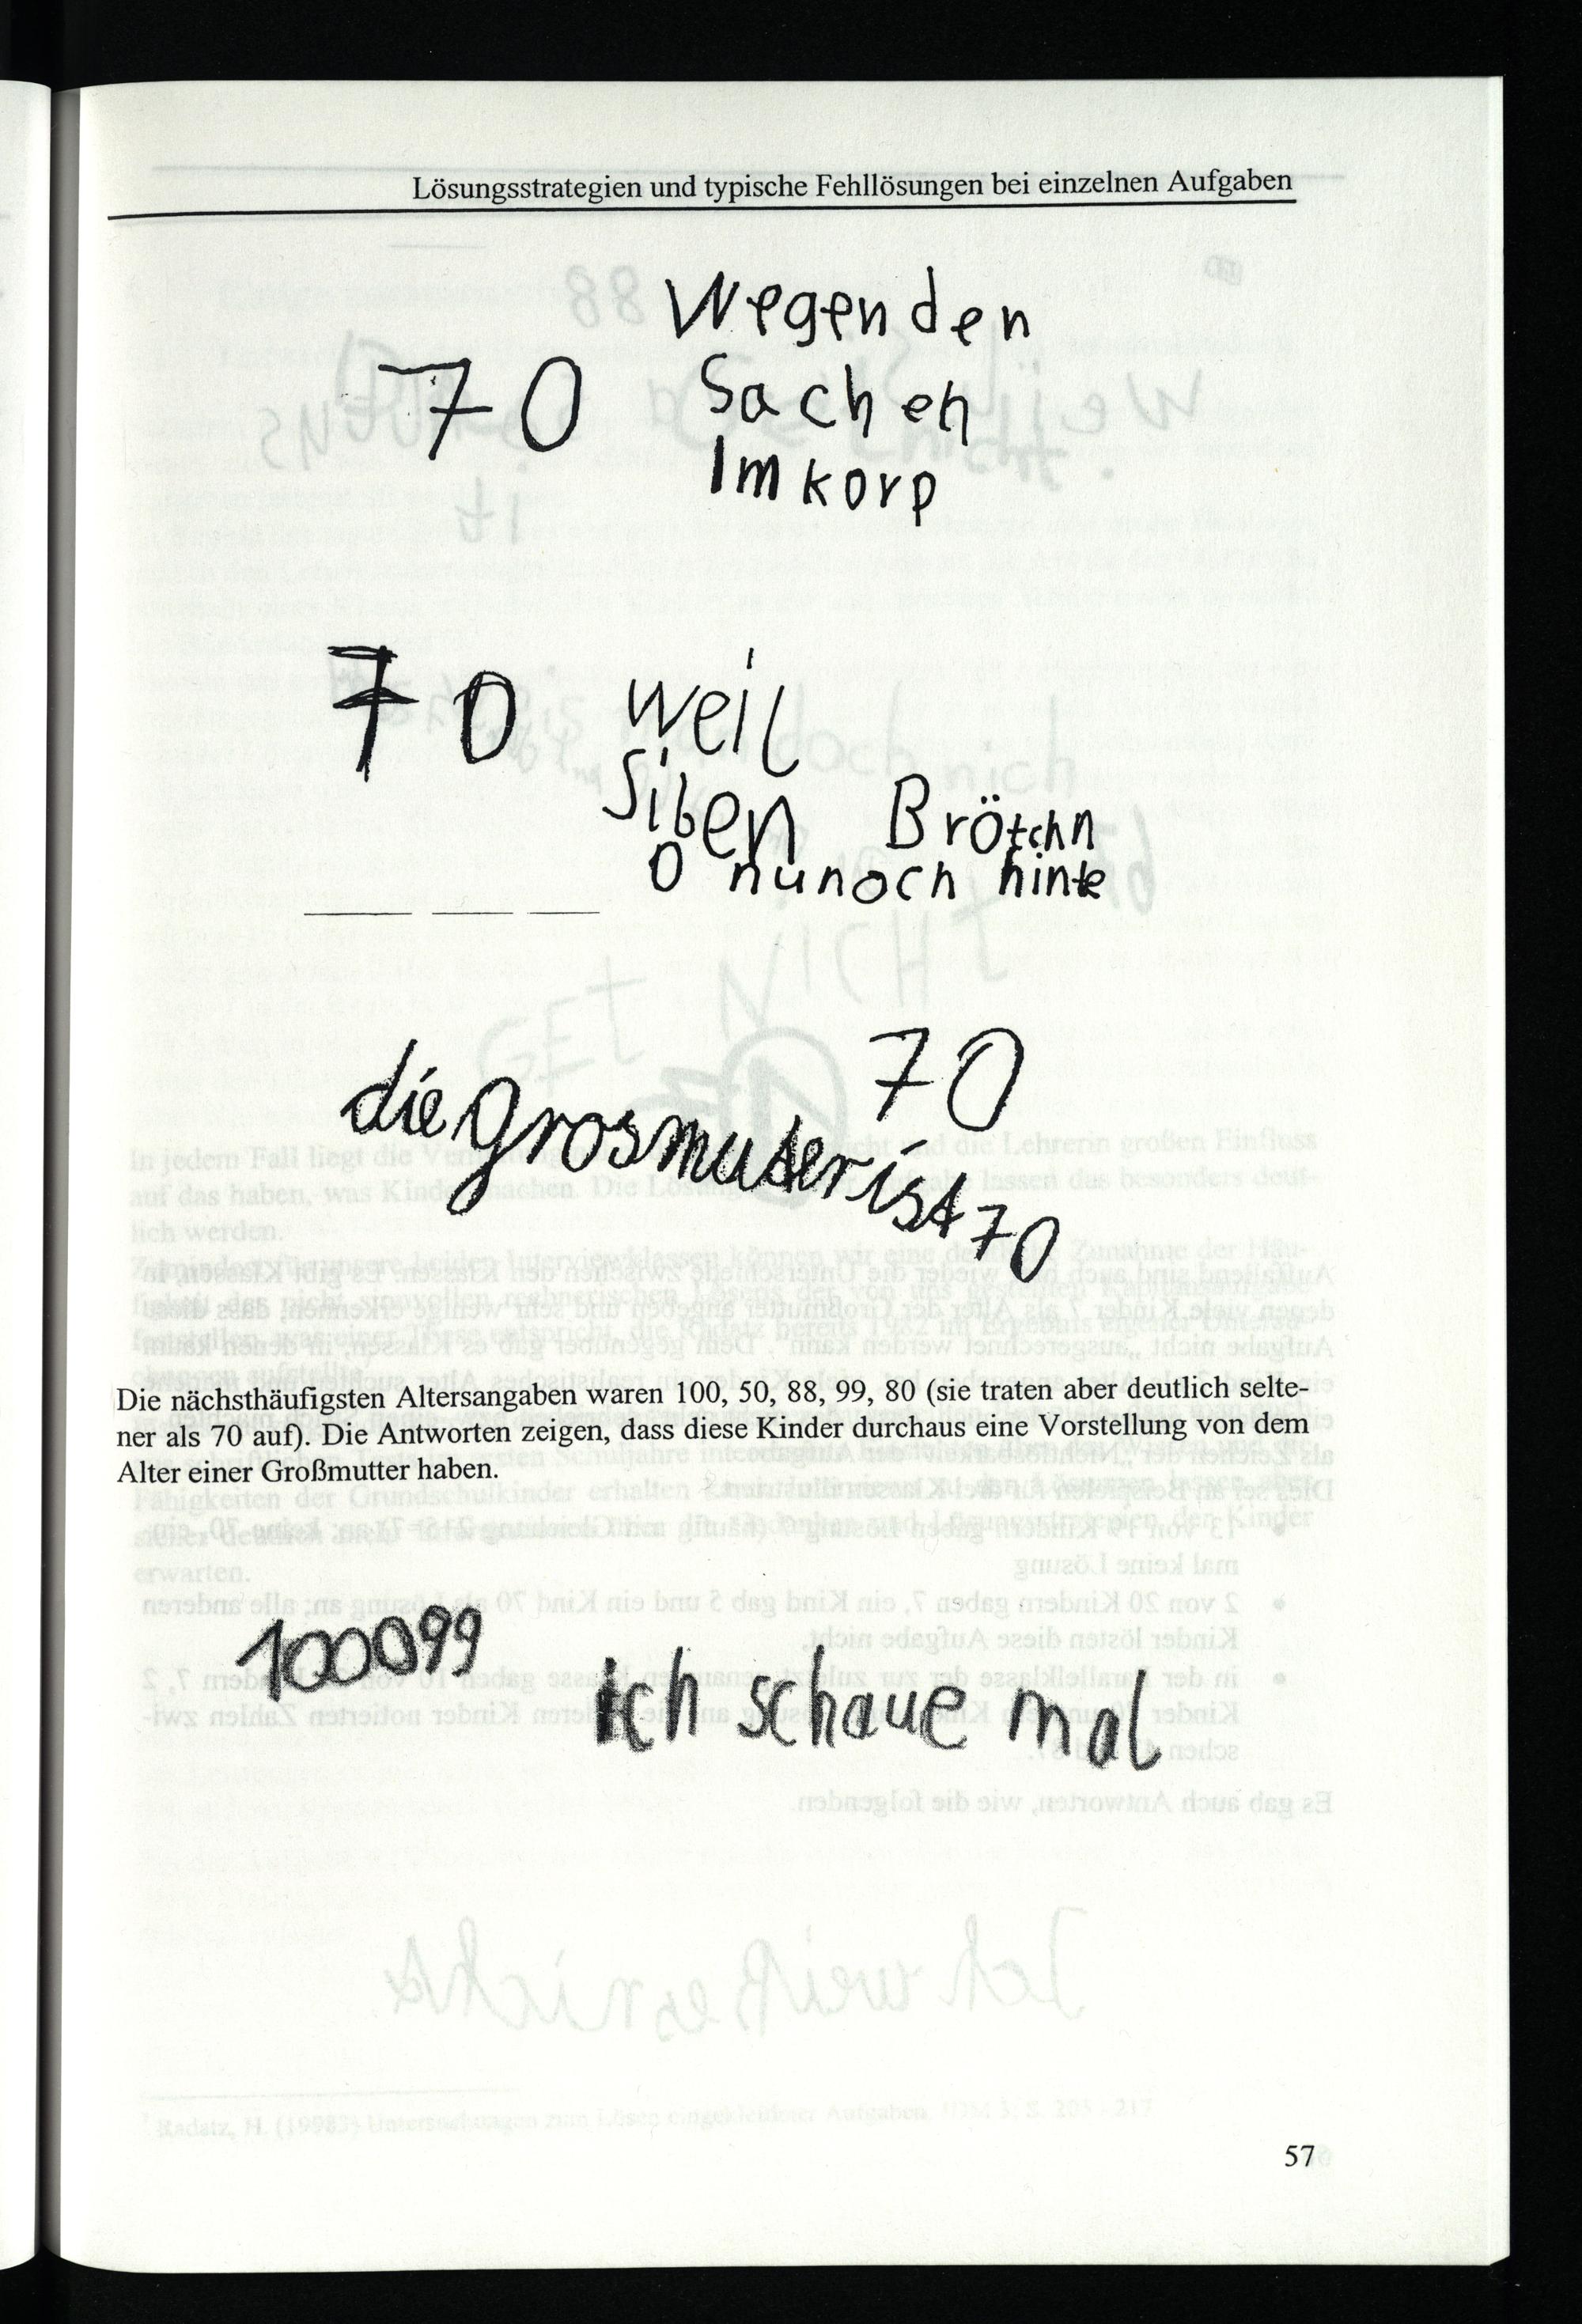 Lösungsstrategien und typische Fehllösungen bei einzelnen Aufgaben
Wegen den
70 Sachen
Im korp
70 weil
Siben Brötchn
0 nunoch hinte
70
die grosmuter ist 70
Die nächsthäufigsten Altersangaben waren 100, 50, 88, 99, 80 (sie traten aber deutlich selte-
ner als 70 auf). Die Antworten zeigen, dass diese Kinder durchaus eine Vorstellung von dem
Alter einer Großmutter haben.
100099
ich schaue mal
57